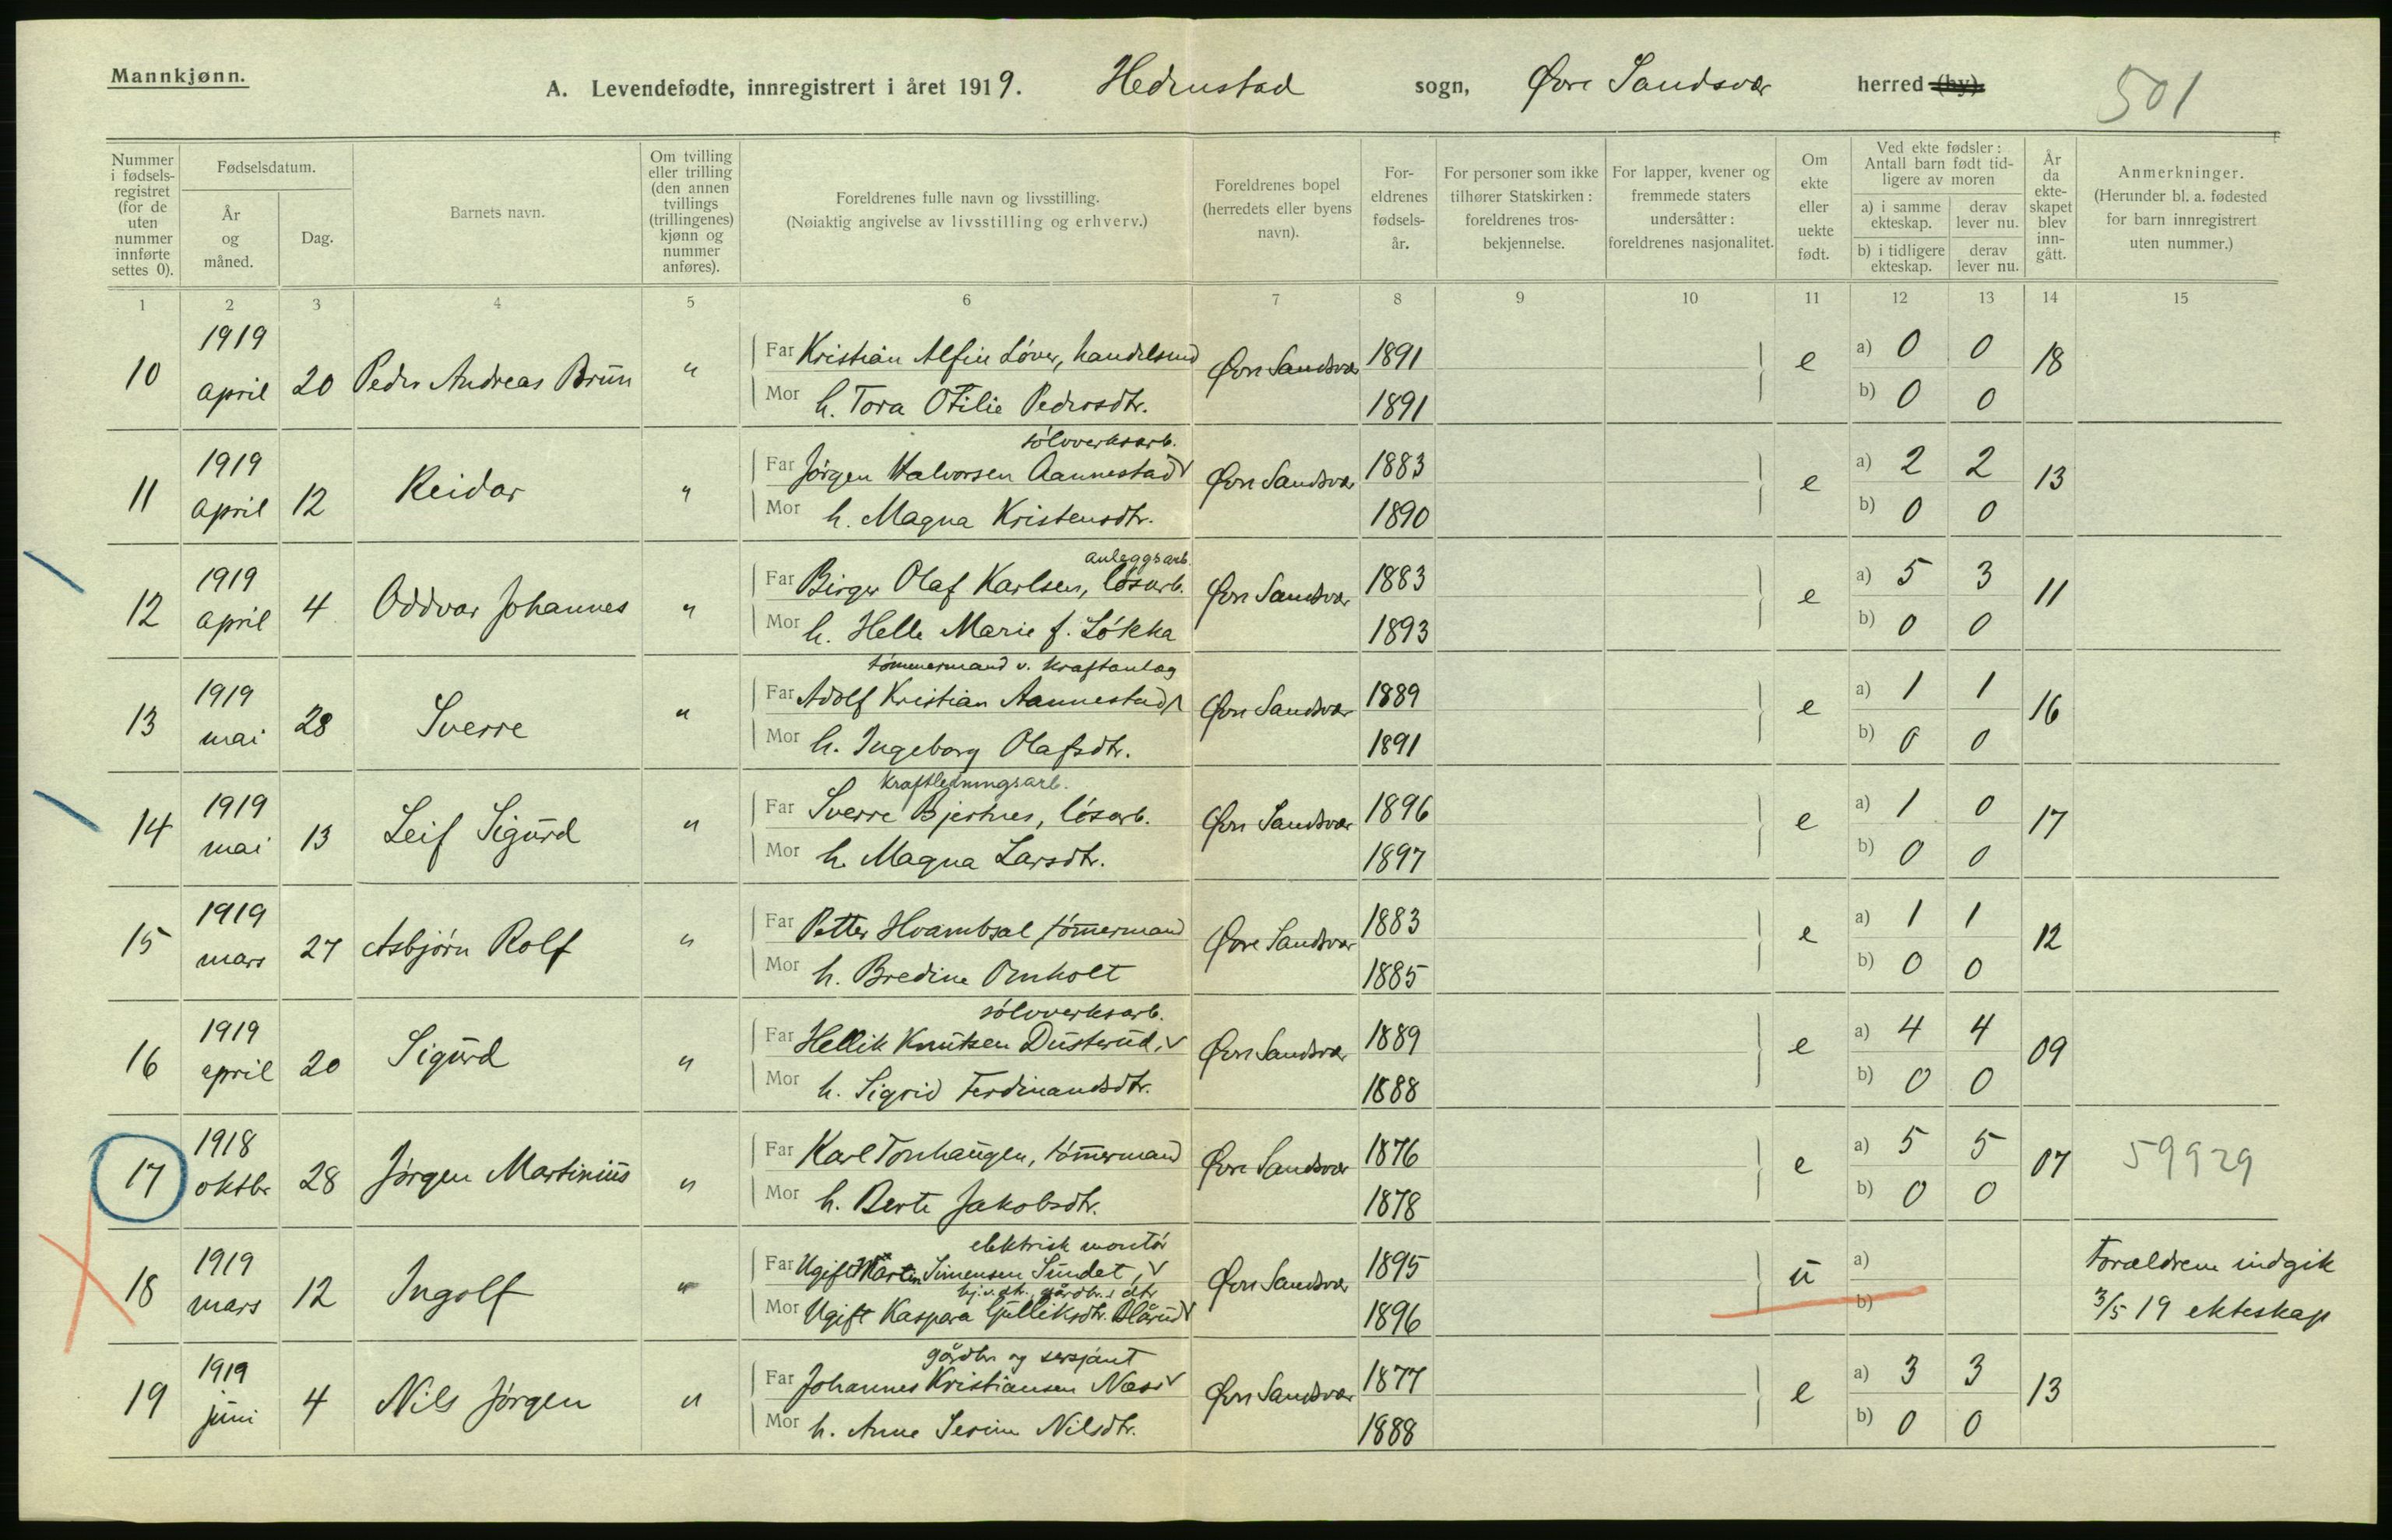 Mannkjønn.
A. Levendefødte, innregistrert i året 1919. Hedenstad sogn, Øvre Sandsvær herred (by).
501
Nummer i fødsels-registret (for de uten nummer innførte settes 0).
Fødselsdatum.
År og måned.
Dag.
Barnets navn.
Om tvilling eller trilling (den annen tvillings (trillingenes) kjønn og nummer anføres).
Foreldrenes fulle navn og livsstilling.
(Nøiaktig angivelse av livsstilling og erhverv.)
Foreldrenes bopel (herredets eller byens navn).
For-eldrenes fødsels-år.
For personer som ikke tilhører Statskirken: foreldrenes tros-bekjennelse.
For lapper, kvener og fremmede staters undersåtter: foreldrenes nasjonalitet.
Om ekte eller uekte født.
Ved ekte fødsler: Antall barn født tid-ligere av moren
a) i samme ekteskap.
derav lever nu.
b) i tidligere ekteskap.
derav lever nu.
År da ekte-skapet blev inn-gått.
Anmerkninger.
(Herunder bl. a. fødested for barn innregistrert uten nummer.)
1 2 3 4 5 6 7 8 9 10 11 12 13 14 15
1919
Far Kristian Alfin Løver, handelsmd 1891 a) 0 0
10 april 20 Peder Andreas Brun " Øvre Sandsvær e 18
Mor h. Tora Otilie Pedersdtr. 1891 b) 0 0
sølvverksarb.
1919 Far Jørgen Halvorsen Aannestad 1883 a) 2 2
11 april 12 Reidar " Øvre Sandsvær e 13
Mor h. Magna Kristensdtr. 1890 b) 0 0
anleggsarb.
1919 Far Birger Olaf Karlsen, løsarb. 1883 a) 5 3
12 april 4 Oddvar Johannes " Øvre Sandsvær e 11
Mor h. Helle Marie f. Løkka 1893 b) 0 0
tømmermand v. kraftanlæg
1919 Far Adolf Kristian Aannestad 1889 a) 1 1
13 mai 28 Sverre " Øvre Sandsvær e 16
Mor h. Ingeborg Olafsdtr. 1891 b) 0 0
kraftledningsarb.
1919 Far Sverre Bjertnes, løsarb. 1896 a) 1 0
14 mai 13 Leif Sigurd " Øvre Sandsvær e 17
Mor h. Magna Larsdtr. 1897 b) 0 0
1919 Far Petter Hvambsal tømmermand 1883 a) 1 1
15 mars 27 Asbjørn Rolf " Øvre Sandsvær e 12
Mor h. Bredine Omholt 1885 b) 0 0
sølvverksarb.
1919 Far Hellik Knutsen Dusterud, 1889 a) 4 4
16 april 20 Sigurd " Øvre Sandsvær e 09
Mor h. Sigrid Ferdinandsdtr. 1888 b) 0 0
1918 Far Karl Tonhaugen, tømmermand 1876 a) 5 5
17 oktbr 28 Jørgen Martinius " Øvre Sandsvær e 07 59929
Mor h. Berte Jakobsdtr. 1878 b) 0 0
elektrisk montør
1919 Far Ugift Martin Simensen Sundet, 1895 a) Forældrene indgik
18 mars 12 Ingolf " Øvre Sandsvær u
hj. v. dtr., gårdbr.s dtr
Mor Ugift Kaspara Gulliksdtr. Blårud 1896 b) 3/5 19 ekteskap
gårdbr og sersjant
1919 Far Johannes Kristiansen Næss 1877 a) 3 3
19 juni 4 Nils Jørgen " Øvre Sandsvær e 13
Mor h. Anne Serine Nilsdtr. 1888 b) 0 0